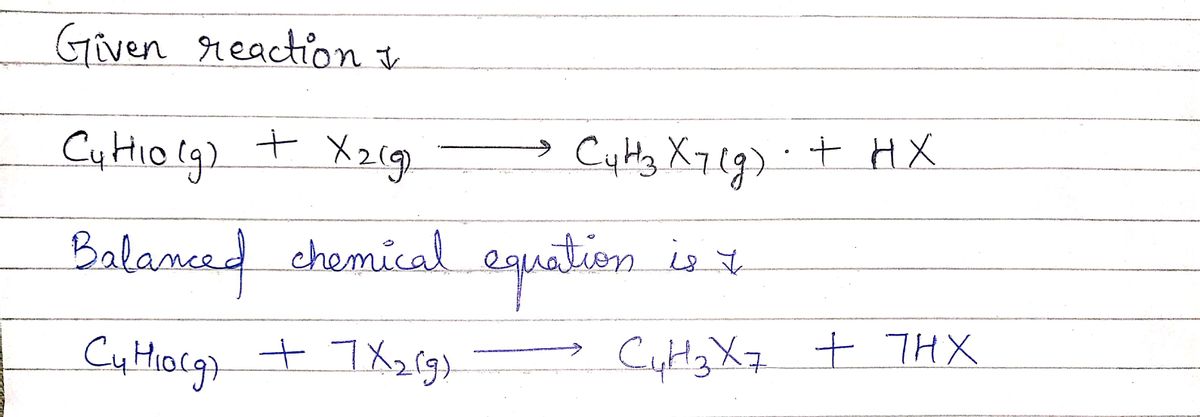 Given reaction ↓
C₄H₁₀(g) + X₂(g) ⟶ C₄H₃X₇(g) · + HX
Balanced chemical equation is ↓
C₄H₁₀(g) + 7X₂(g) ⟶ C₄H₃X₇ + 7HX